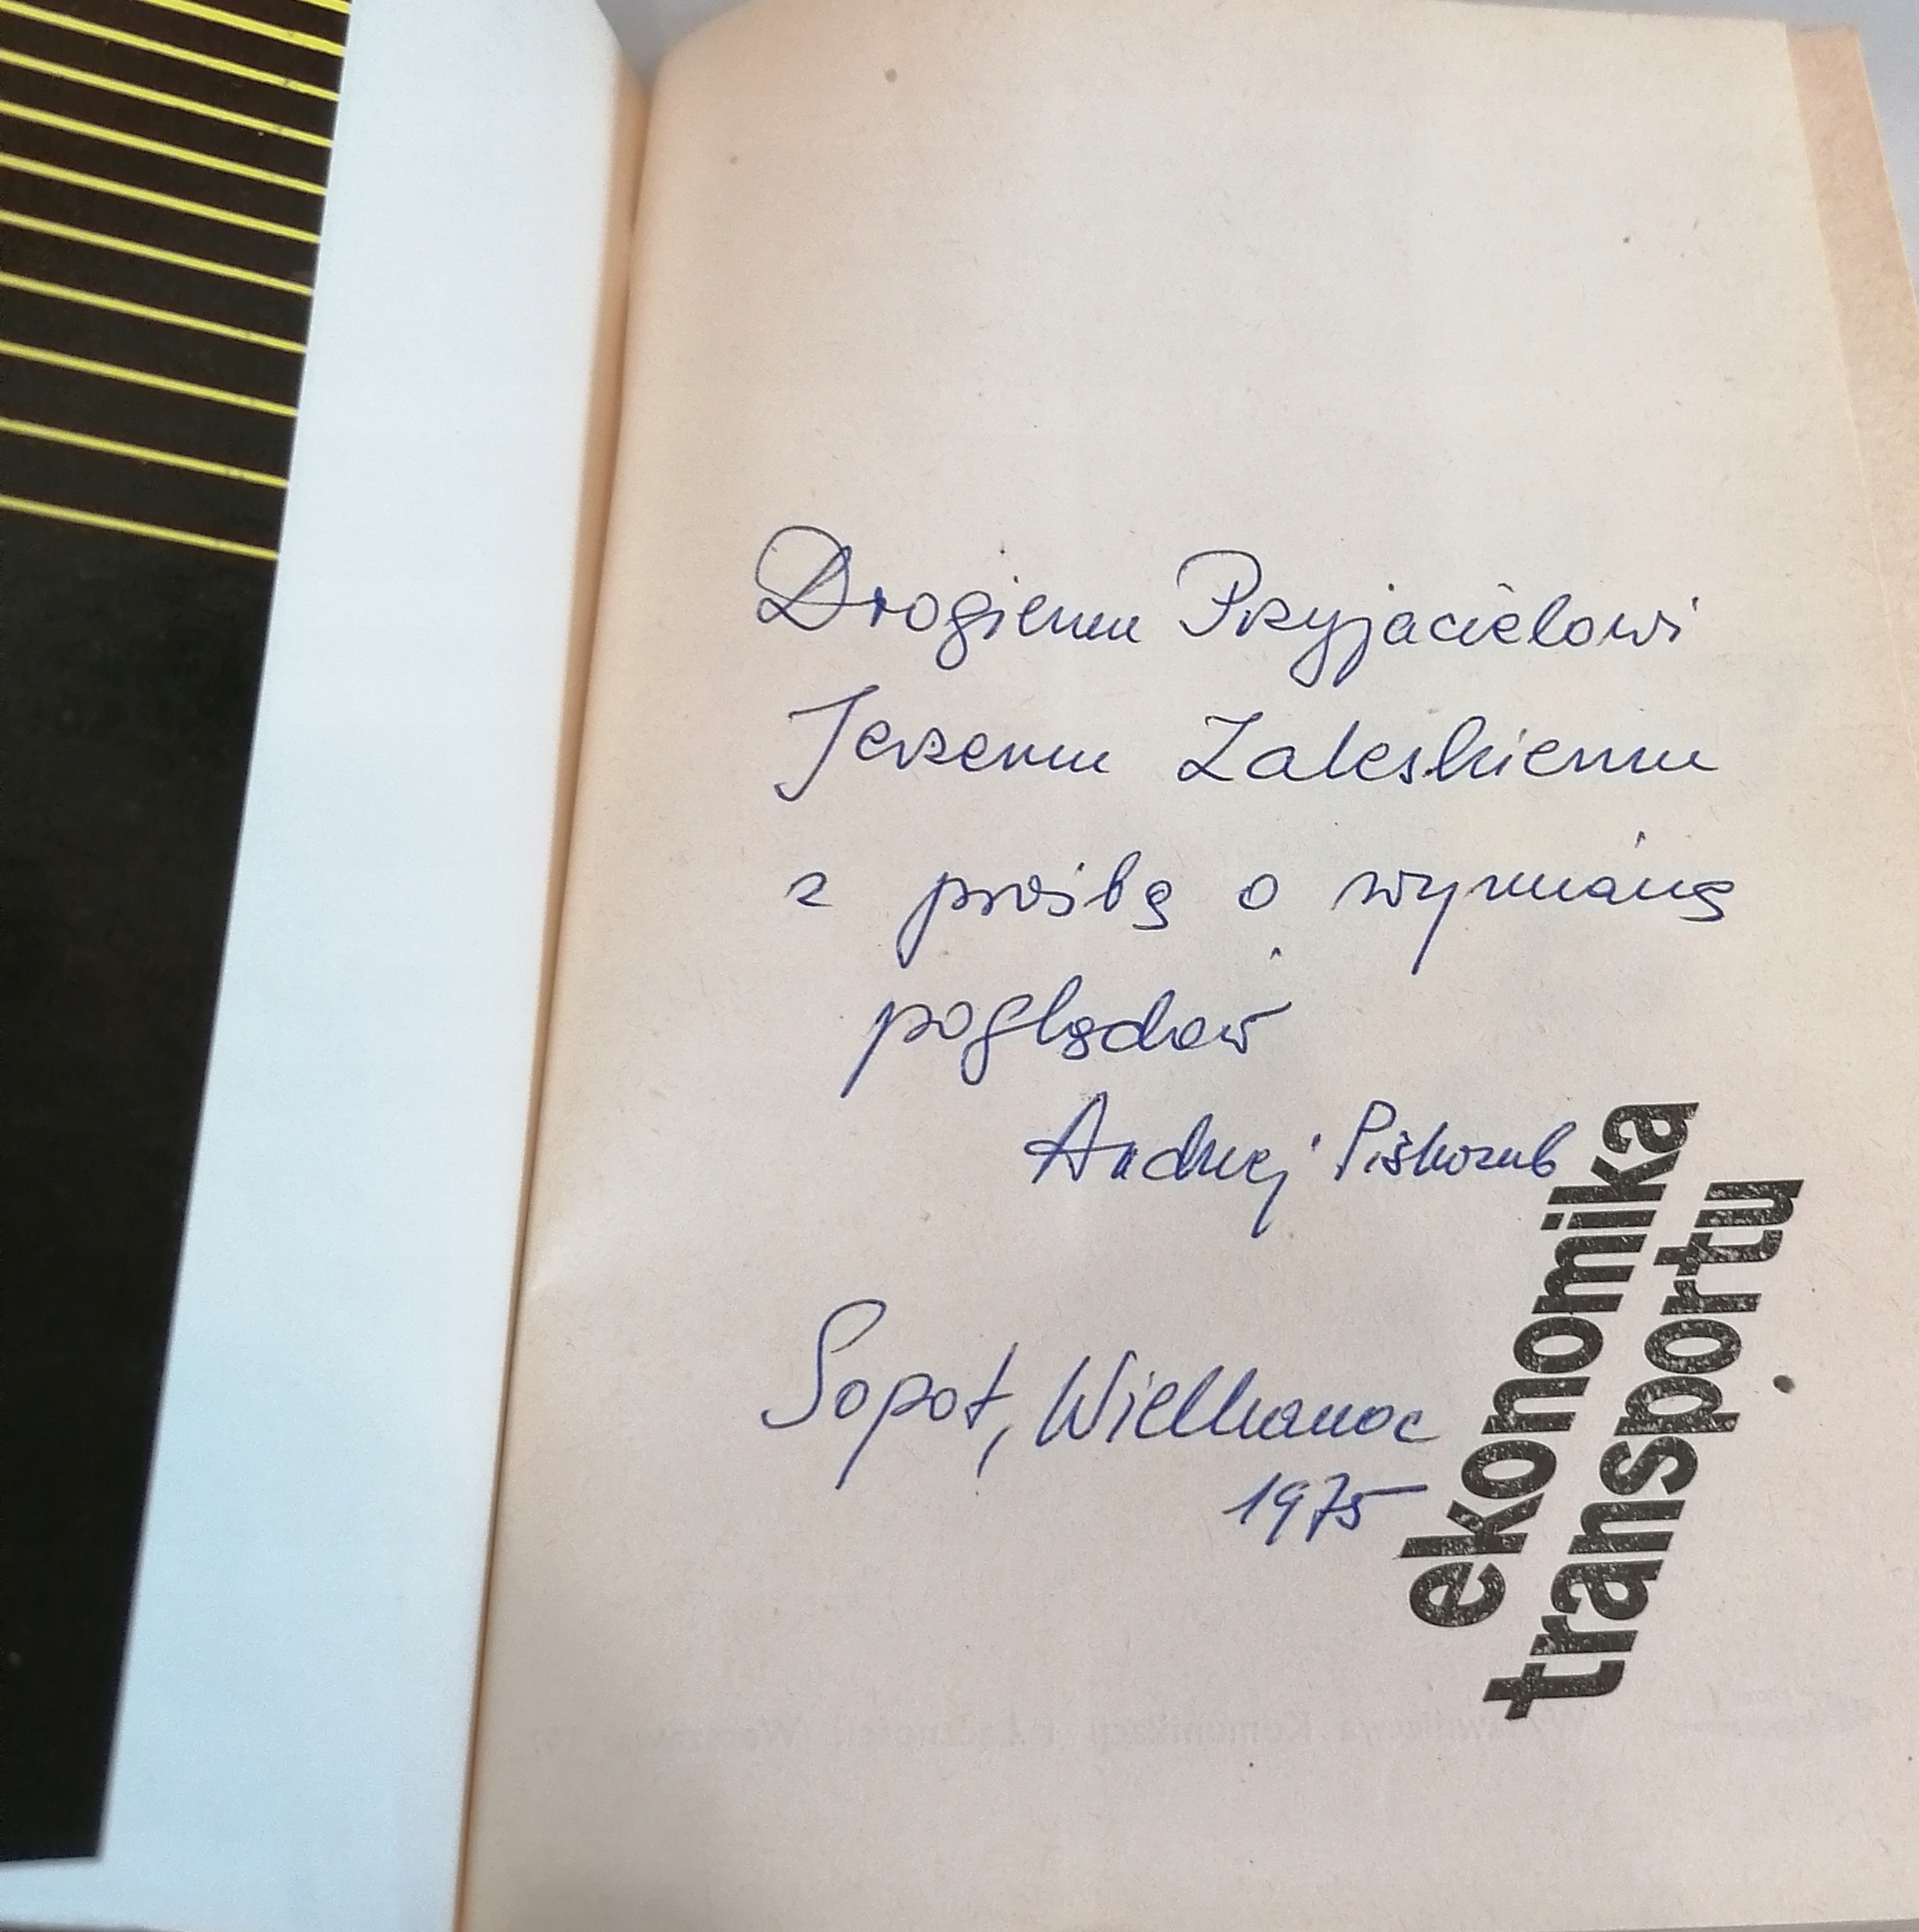 Drogiemu Przyjacielowi
Jerzemu Zaleskiemu
z prośbą o wymianę
poglądów
Andrzej Piskozub
Sopot, Wielkanoc
1975
ekonomika
transportu